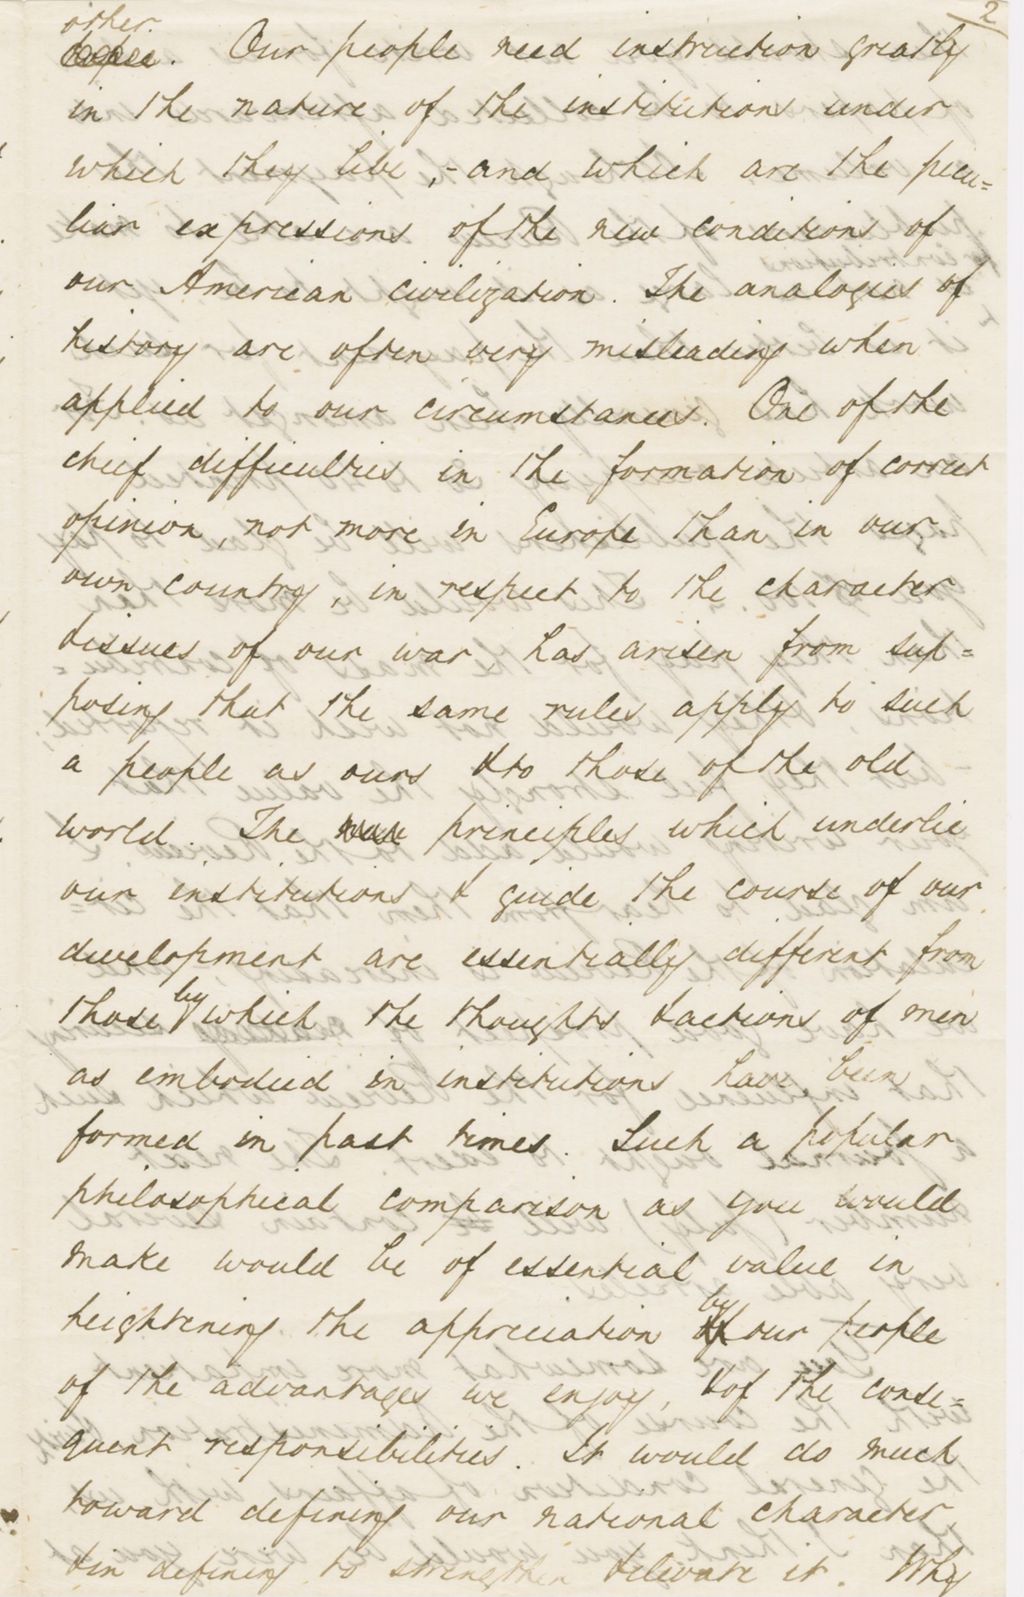 2
other
. Our people need instruction greatly
in the nature of the institutions under
which they live,- and which are the pecu=
liar expressions of the new conditions of
our American civilization. The analogies of
history are often very misleading when
applied to our circumstances. One of the
chief difficulties in the formation of correct
opinion, not more in Europe than in our
own country, in respect to the character
& issues of our war, has arisen from sup=
posing that the same rules apply to such
a people as ours & to those of the old
world. The principles which underlie
our institutions & guide the course of our
development are essentially different from
those by which the thoughts & actions of men
as embodied in institutions have been
formed in past times. Such a popular
philosophical comparison as you would
make would be of essential value in
heightening the appreciation by our people
of the advantages we enjoy, & of the conse=
quent responsibilities. It would do much
toward defining our national character,
& in defining to strengthen & elevate it. Why